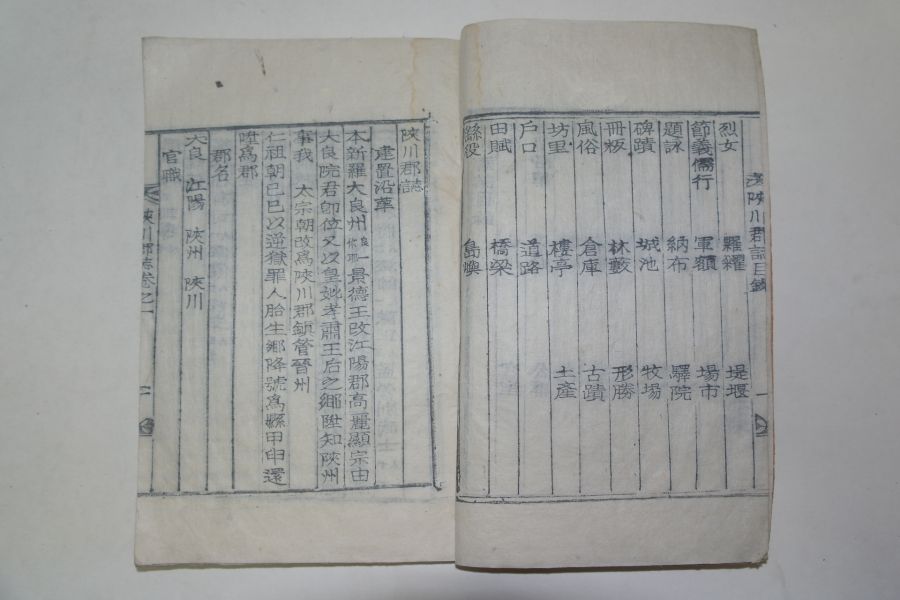 陜川郡誌目錄
烈女 糶糴 堤堰
節義儒行 軍額 場市
題詠 納布 驛院
碑蹟 城池 牧場
冊板 林藪 形勝
風俗 倉庫 古蹟
坊里 樓亭 土産
戶口 道路
田賦 橋梁
繇役 島嶼
陜川郡誌
建置沿革
本新羅大良州 景德王改江陽郡高麗顯宗由
大良院君卽位又以皇妣孝肅王后之鄕陞知陜州
事我 太宗朝改爲陜川郡鎭管晉州
仁祖朝己巳以逆獄罪人胎生鄕降號爲縣甲申還
陞爲郡
郡名
大良 江陽 陜州 陜川
官職
陜川郡誌卷之一